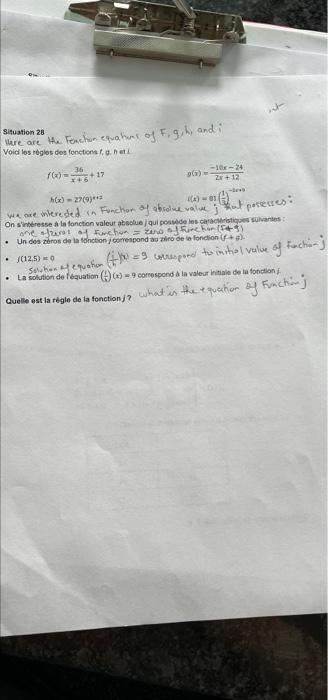 Situation 28
Here are the Function equations of F, g, h, and i
Voici les règles des fonctions f, g, h et i.
f(x) = 36/(x + 6) + 17
g(x) = (−10x − 24)/(2x + 12)
h(x) = 27(9)^(x+2)
i(x) = 81(1/3)^(−2x+9)
we are interested in Function of absolue value j that posesses:
On s'intéresse à la fonction valeur absolue j qui possède les caractéristiques suivantes :
one of zeros of function = zero of Function (f+g)
• Un des zéros de la fonction j correspond au zéro de la fonction (f + g).
• j(12,5) = 0
Solution of equation (i/h)(x) = 9 correspond to initial value of fuction j
• La solution de l'équation (i/h)(x) = 9 correspond à la valeur initiale de la fonction j.
Quelle est la règle de la fonction j? what is the equation of Function j